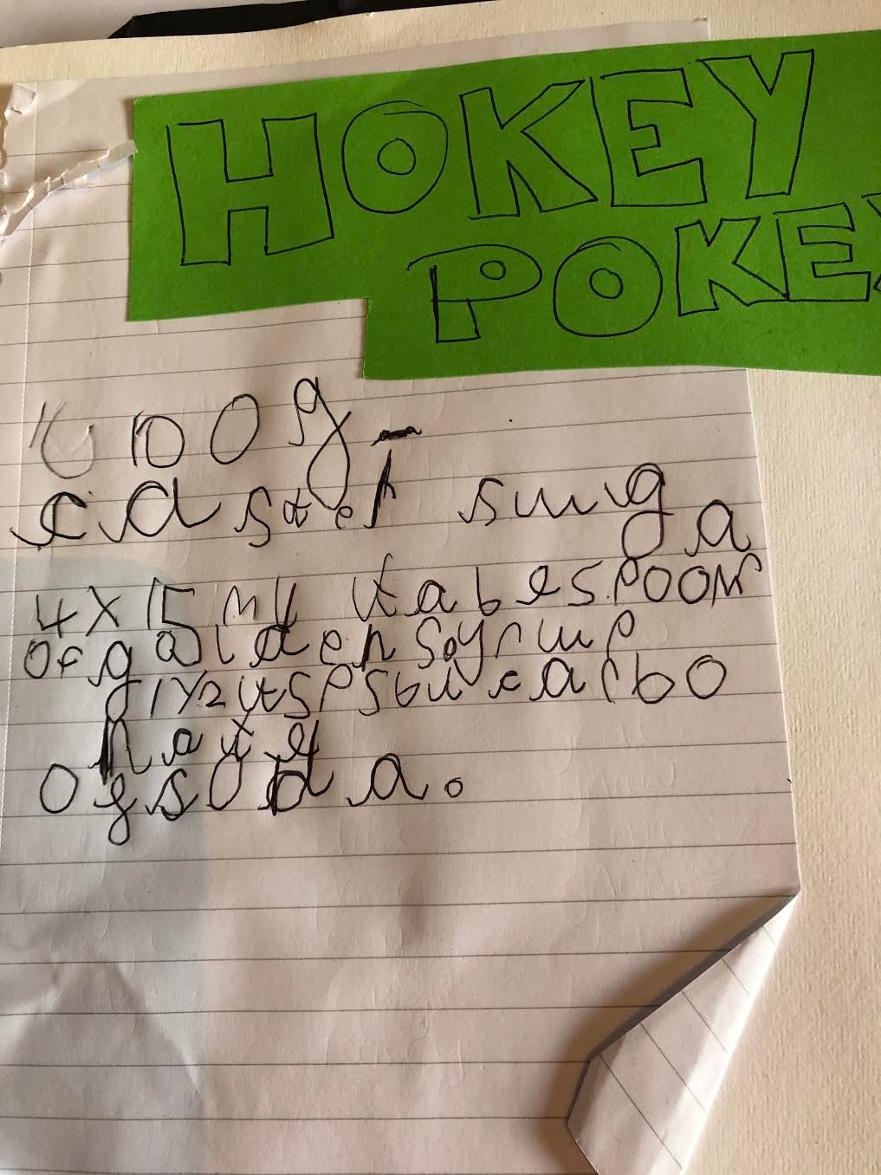 HOKEY
POKEY
100g
caster suga
4x15 ml tabespoon
of galden sayrup
1 1/2 tsps bu carbo
nate
of soda.